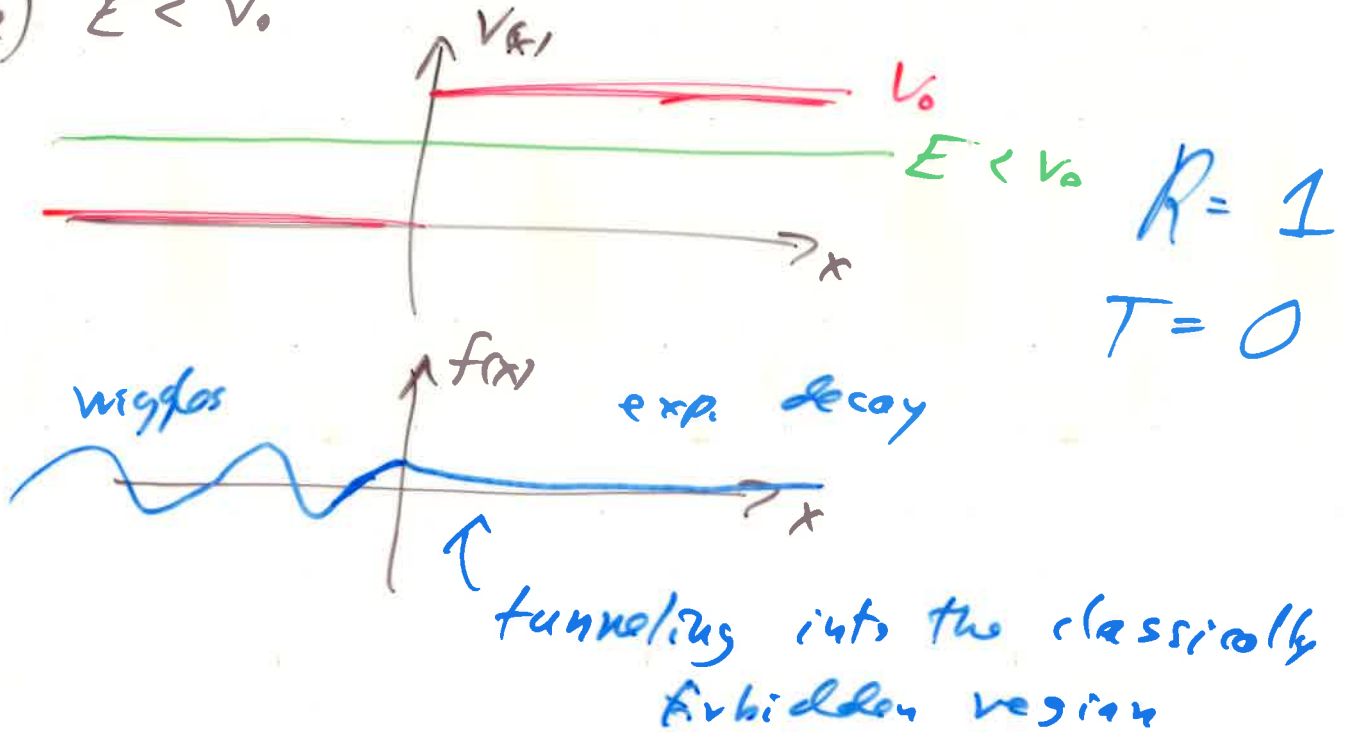 E < V₀
V(x)
V₀
E < V₀
R = 1
x
T = 0
f(x)
wiggles
exp. decay
x
tunneling into the classically
forbidden region